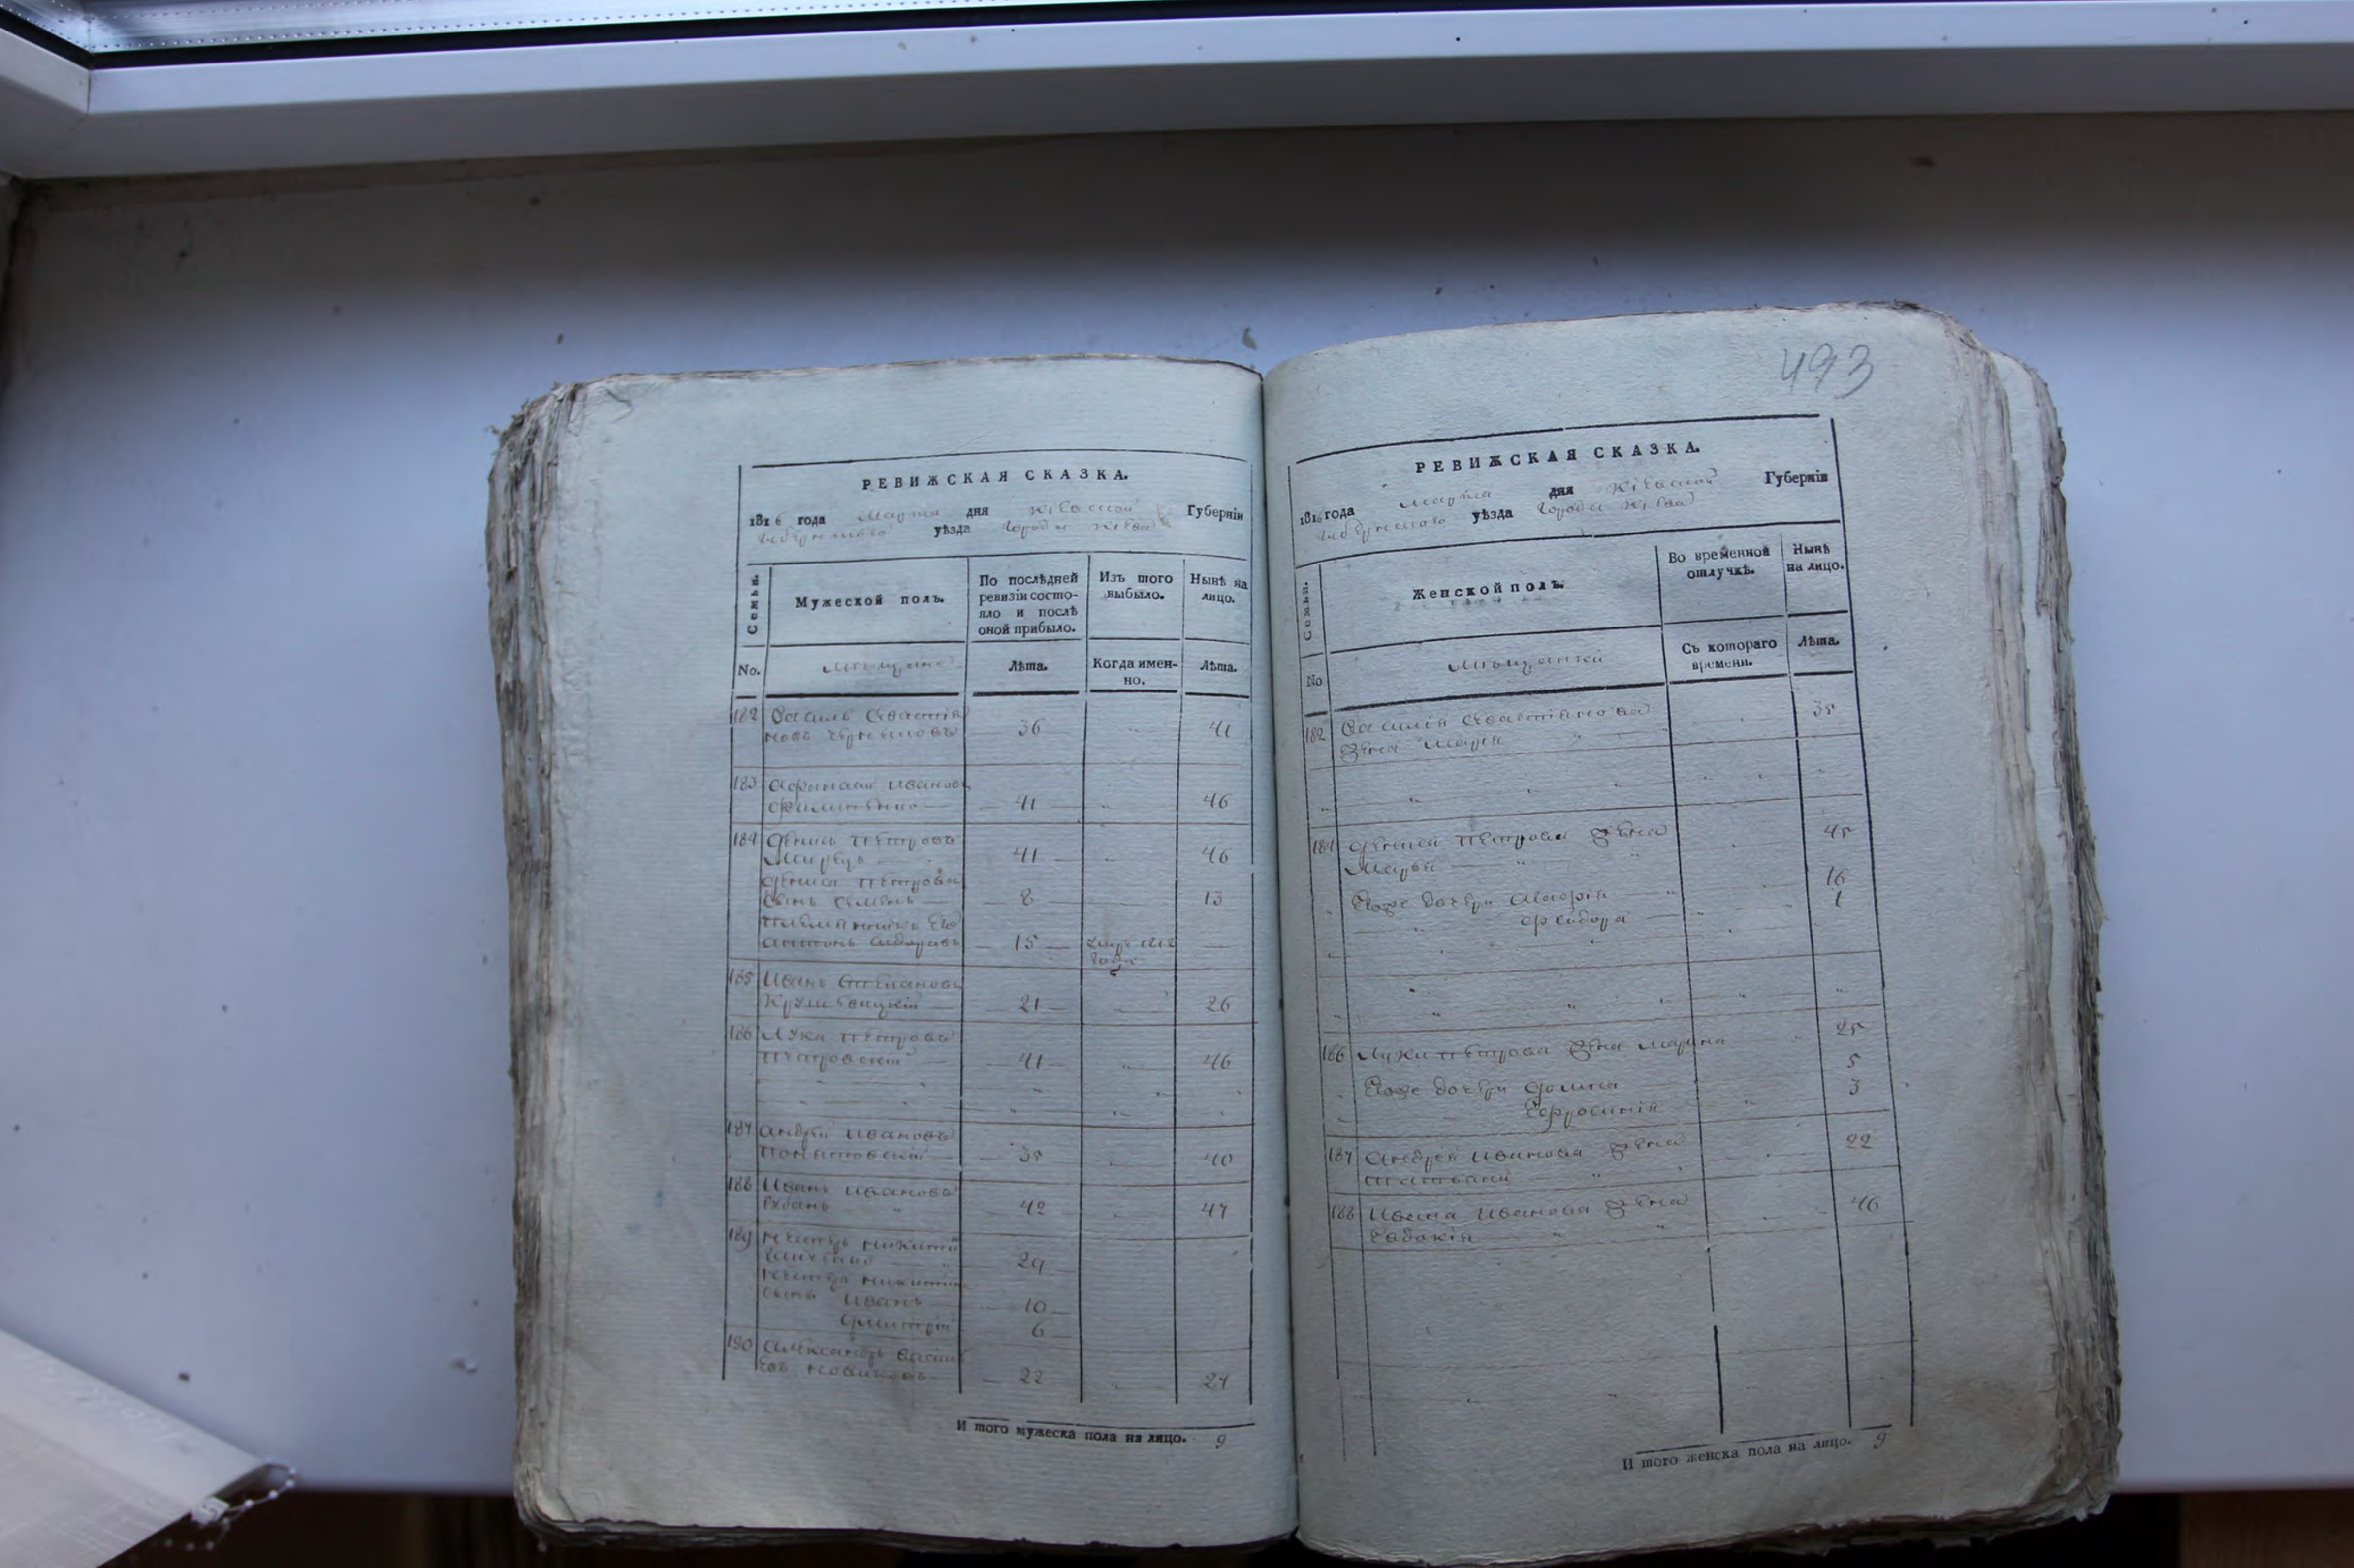 РЕВИЖСКАЯ СКАЗКА.
1816 года Марта дня Кіевской Губерніи
Губернского уѣзда Города Кіева
Семьи.
Мужеской полъ.
По послѣдней ревизіи состо-
яло и послѣ
оной прибыло.
Изъ того
выбыло.
Нынѣ на
лицо.
No.
Мѣщане
Лѣта.
Когда имен-
но.
Лѣта.
182 Василь Севастія
новъ 36 41
183 Афанасий Ивановъ
41 46
184 Денисъ Петровъ
41 46
Дениса Петрова
сынъ Семенъ 8 13
Племянникъ Его
Антонъ Сидоровъ 15 умре 1812
года
185 Иванъ Степановъ
21 26
186 Лука Петровъ
Петровский 41 46
187 Андрей Ивановъ
Понятовский 35 40
188 Иванъ Ивановъ
42 47
189 Нестеръ Никитинъ
29
Нестера Никитина
сынъ Иванъ 10
Дмитрій 6
190 Александръ Василь
евъ Новиковъ 22 27
И того мужеска пола на лицо. 9
493
РЕВИЖСКАЯ СКАЗКА.
1816 года Марта дня Кіевской Губерніи
Губернского уѣзда Города Кіева
Семьи.
Женской полъ.
Во временной
отлучкѣ.
Нынѣ
на лицо.
No
Мѣщанки
Съ котораго
времени.
Лѣта.
182 Василія Севастіянова 35
Жена Марія
184 Дениса Петрова Жена 45
Марья
Егоже дочери 16
Феидора 1
186 Луки Петрова Жена Марина 25
Егоже дочери Домна 5
Ефросинія 3
187 Андрея Иванова Жена 22
Татьяна
188 Ивана Иванова Жена 46
Евдокія
И того женска пола на лицо. 9